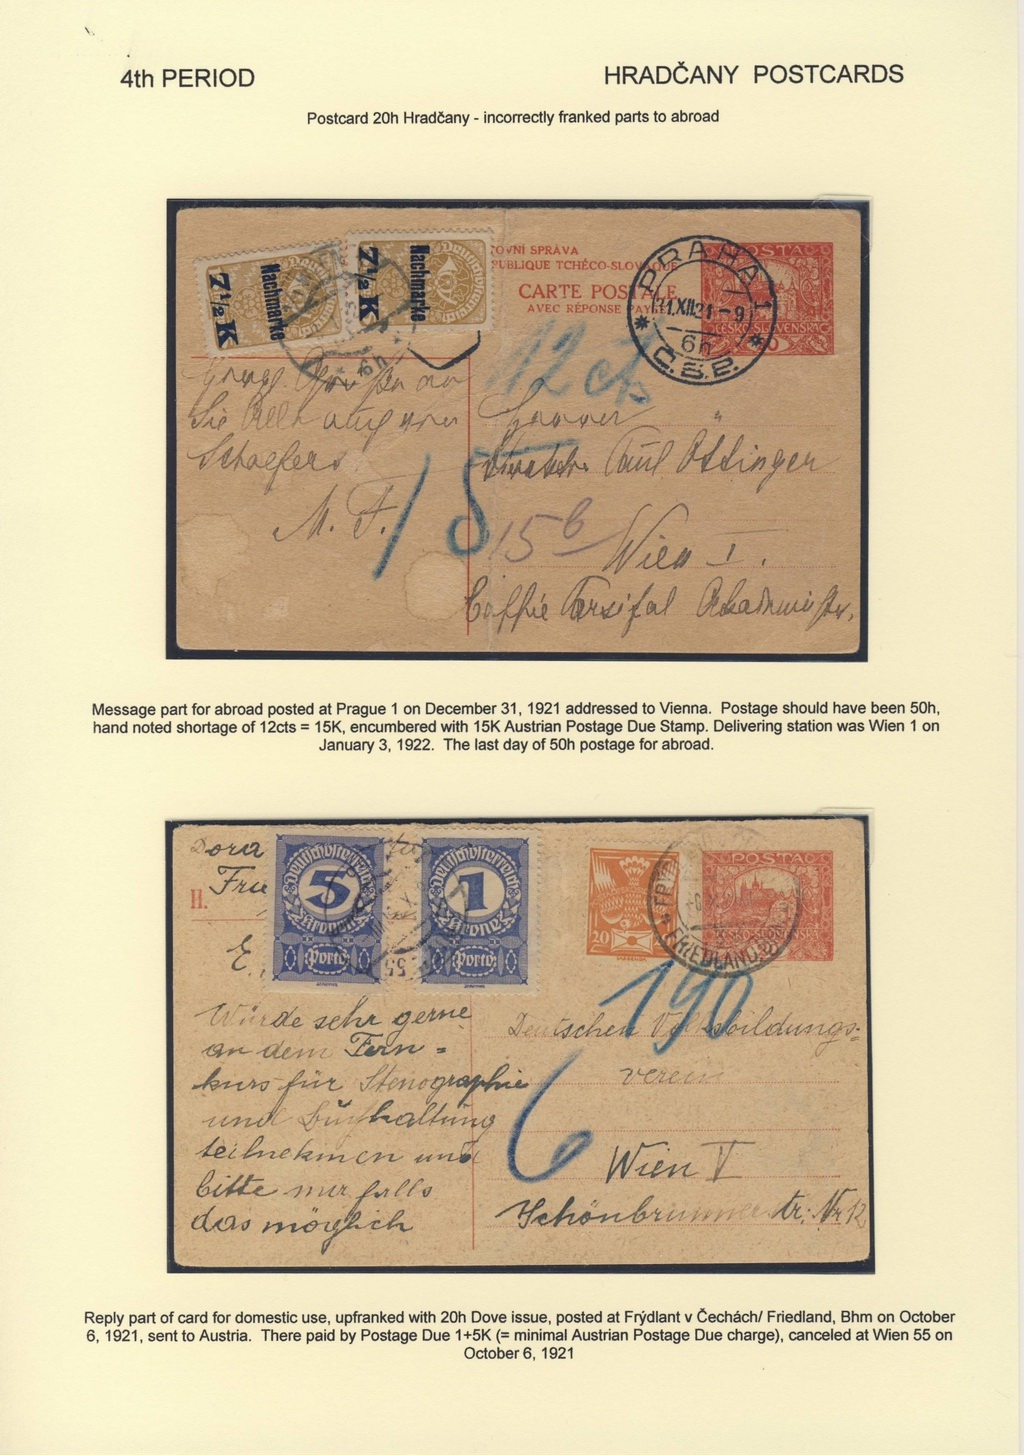 4th PERIOD
HRADČANY POSTCARDS
Postcard 20h Hradčany - incorrectly franked parts to abroad
7½ K Nachmarke
7½ K Nachmarke
TOVNÍ SPRÁVA
PUBLIQUE TCHÉCO-SLOVAQUE
CARTE POSTALE
AVEC RÉPONSE PAYÉE
PRAHA 1
31.XII.21-9
6h
Č.S.P.
POSTA
ČESKO-SLOVENSKÁ
12 cts
Sie
Schaefers
M. F.
15
15 6
Paul Öttinger
Wien I.
Message part for abroad posted at Prague 1 on December 31, 1921 addressed to Vienna. Postage should have been 50h,
hand noted shortage of 12cts = 15K, encumbered with 15K Austrian Postage Due Stamp. Delivering station was Wien 1 on
January 3, 1922. The last day of 50h postage for abroad.
Dora
II.
Deutschösterreich
5
Kronen
Porto
Deutschösterreich
1
Krone
Porto
20
POSTA
ČESKO-SLOVENSKÁ
FRIEDLAND
190
6
Würde sehr gerne
an dem Fern=
kurs für Stenographie
und Buchhaltung
teilnehmen und
bitte mir falls
das möglich
Deutschen Volksbildungs-
verein
Wien V
Schönbrunnerstr. Nr 12
Reply part of card for domestic use, upfranked with 20h Dove issue, posted at Frýdlant v Čechách/ Friedland, Bhm on October
6, 1921, sent to Austria. There paid by Postage Due 1+5K (= minimal Austrian Postage Due charge), canceled at Wien 55 on
October 6, 1921